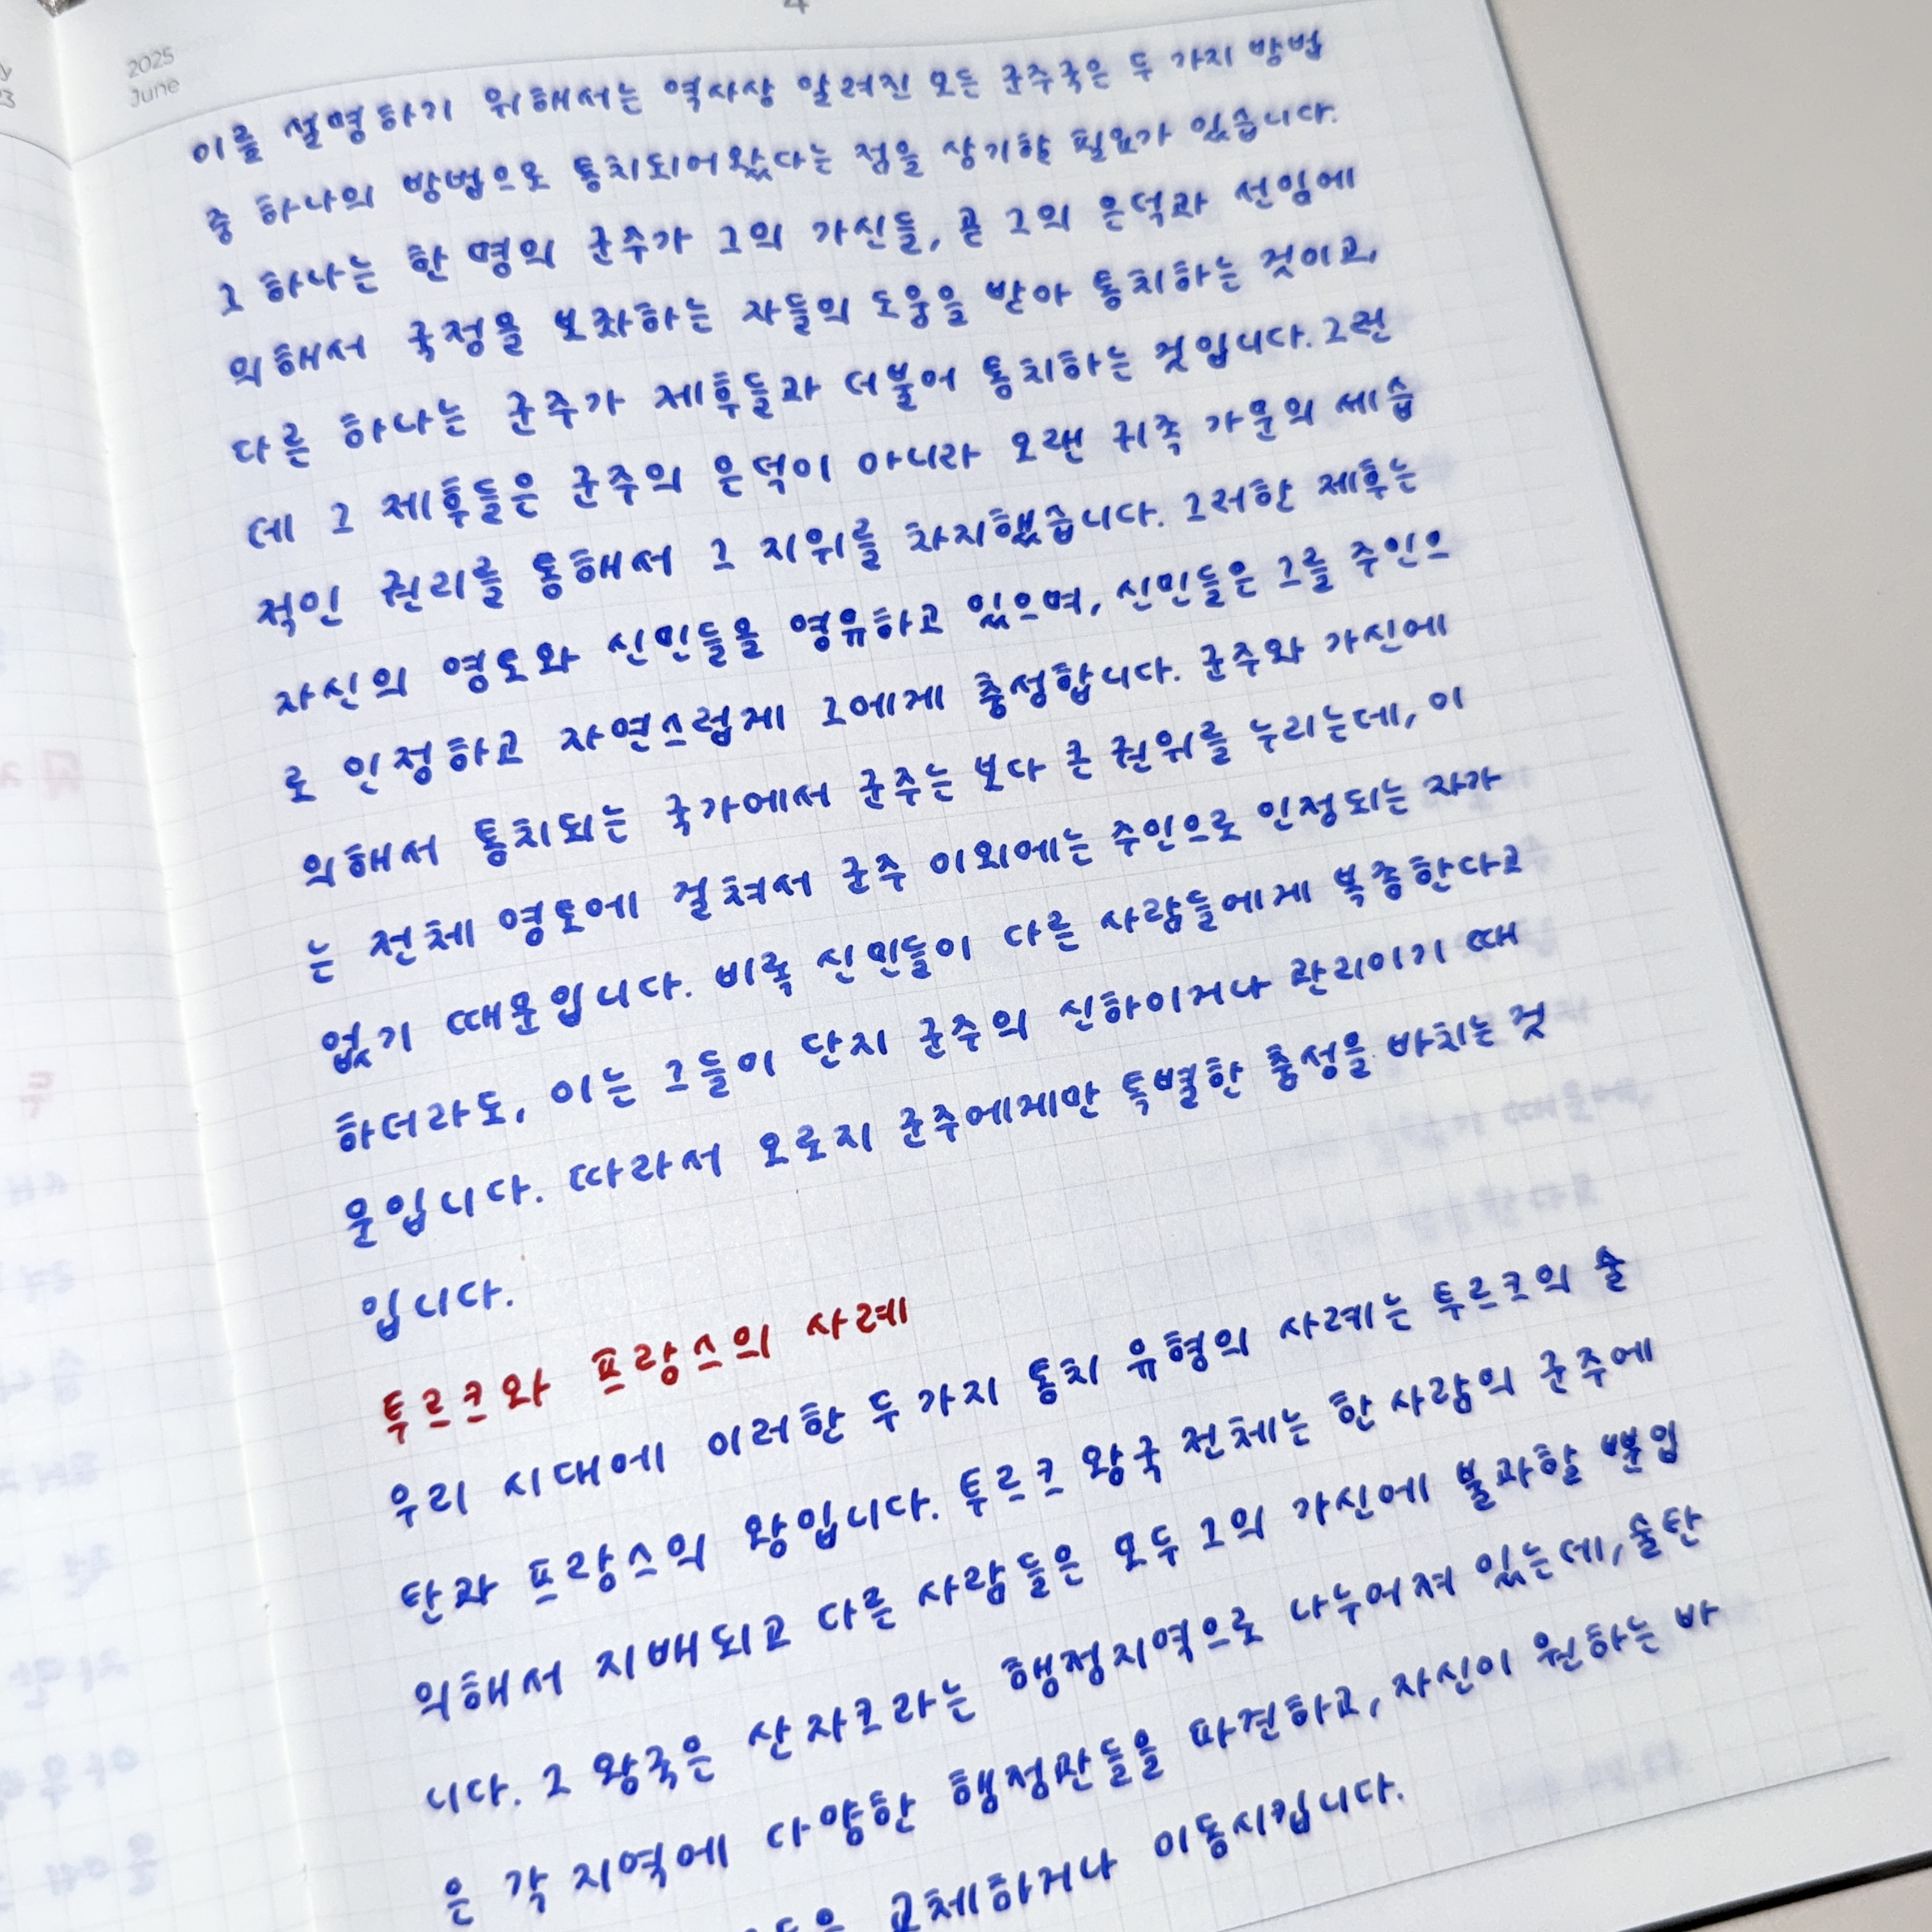 2025
June
4
이를 설명하기 위해서는 역사상 알려진 모든 군주국은 두 가지 방법
중 하나의 방법으로 통치되어왔다는 점을 상기할 필요가 있습니다.
그 하나는 한 명의 군주가 그의 가신들, 곧 그의 은덕과 선임에
의해서 국정을 보좌하는 자들의 도움을 받아 통치하는 것이고,
다른 하나는 군주가 제후들과 더불어 통치하는 것입니다. 그런
데 그 제후들은 군주의 은덕이 아니라 오랜 귀족 가문의 세습
적인 권리를 통해서 그 지위를 차지했습니다. 그러한 제후는
자신의 영토와 신민들을 영유하고 있으며, 신민들은 그를 주인으
로 인정하고 자연스럽게 그에게 충성합니다. 군주와 가신에
의해서 통치되는 국가에서 군주는 보다 큰 권위를 누리는데, 이
는 전체 영토에 걸쳐서 군주 이외에는 주인으로 인정되는 자가
없기 때문입니다. 비록 신민들이 다른 사람들에게 복종한다고
하더라도, 이는 그들이 단지 군주의 신하이거나 관리이기 때
문입니다. 따라서 오로지 군주에게만 특별한 충성을 바치는 것
입니다.
투르크와 프랑스의 사례
우리 시대에 이러한 두 가지 통치 유형의 사례는 투르크의 술
탄과 프랑스의 왕입니다. 투르크 왕국 전체는 한 사람의 군주에
의해서 지배되고 다른 사람들은 모두 그의 가신에 불과할 뿐입
니다. 그 왕국은 산자크라는 행정지역으로 나누어져 있는데, 술탄
은 각 지역에 다양한 행정관들을 파견하고, 자신이 원하는 바
교체하거나 이동시킵니다.